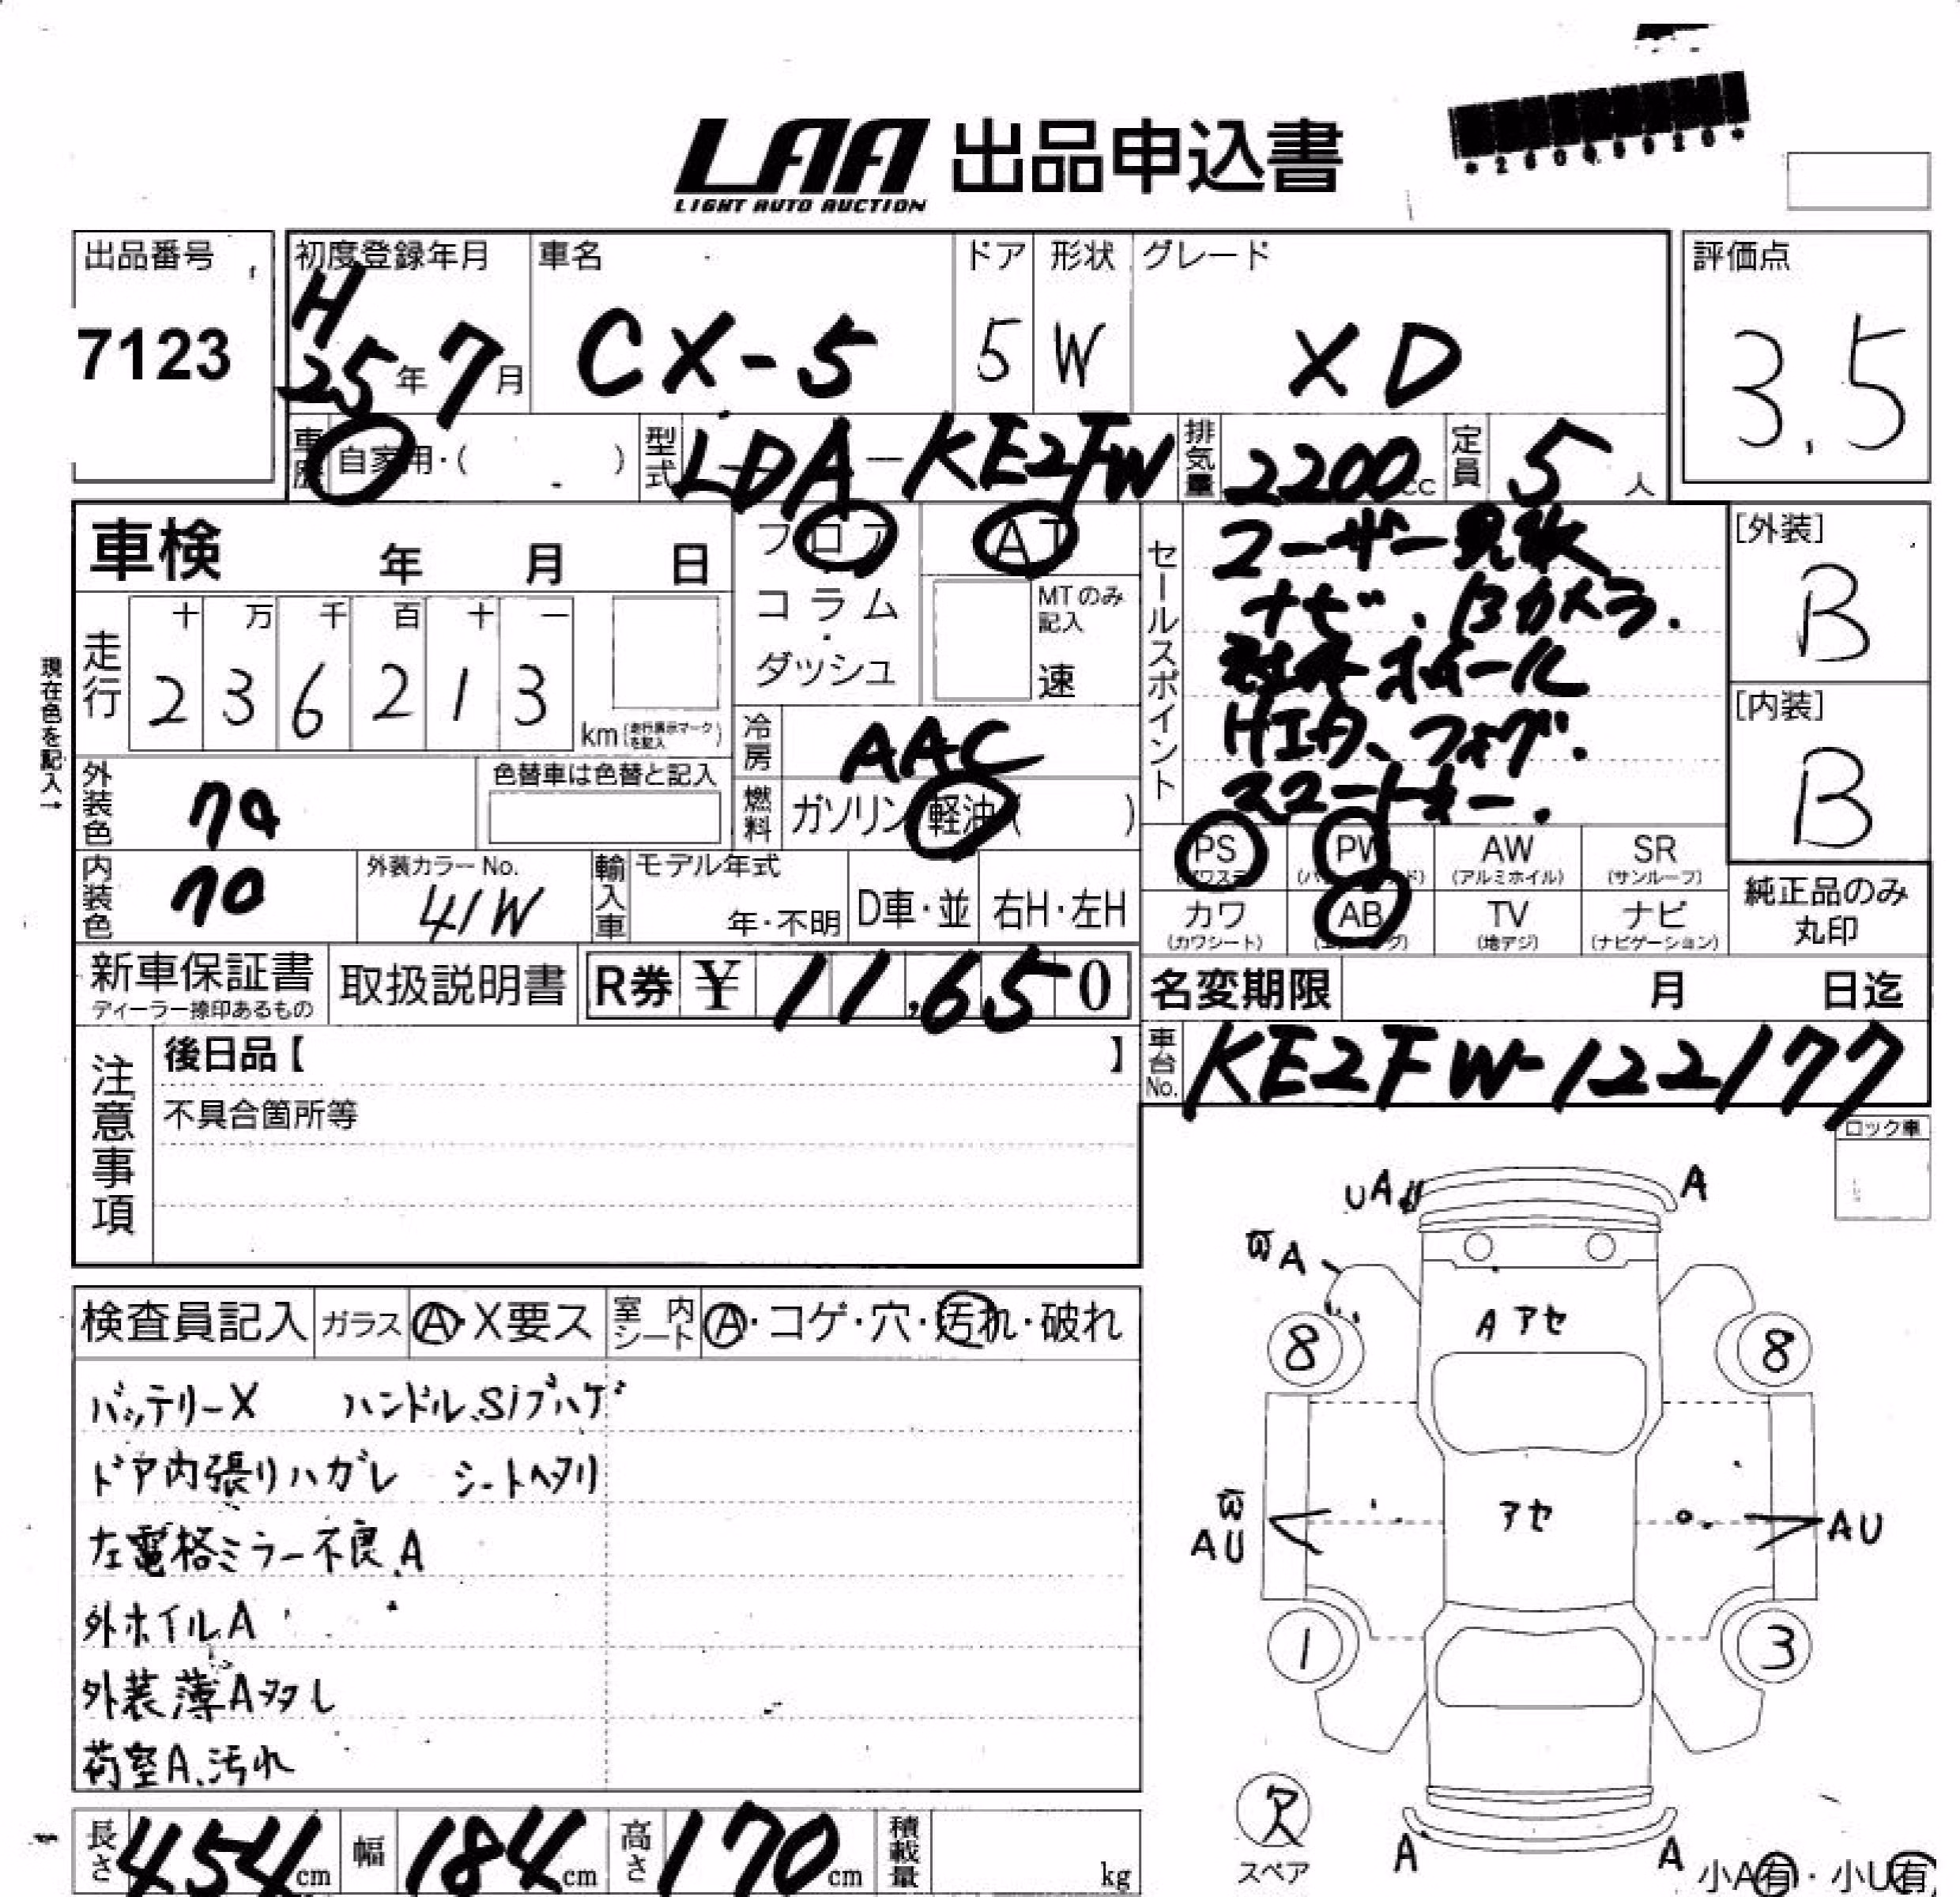 LAA 出品申込書
LIGHT AUTO AUCTION
出品番号
7123
初度登録年月
H25年7月
車名
CX-5
ドア
5
形状
W
グレード
XD
評価点
3.5
車歴 自家用・( )
型式 LDA-KE2FW
排気量 2200cc
定員 5人
車検 年 月 日
フロア
コラム・ダッシュ
AT
MTのみ記入
速
走行
十 万 千 百 十 一
2 3 6 2 1 3
km(走行表示マークを記入)
現在色を記入→
冷房 AAC
燃料 ガソリン 軽油( )
外装色
色替車は色替と記入
内装色
外装カラーNo.
41W
輸入車
モデル年式
年・不明
D車・並
右H・左H
セールスポイント
ユーザー買取
ナビ、Bカメラ.
ホイール
フォグ.
スマートキー.
[外装]
B
[内装]
B
PS
PW
AW
(アルミホイル)
SR
(サンルーフ)
カワ
(カワシート)
AB
TV
(地デジ)
ナビ
(ナビゲーション)
純正品のみ
丸印
新車保証書
ディーラー捺印あるもの
取扱説明書
R券 ¥ 11,650
名変期限 月 日迄
車台No. KE2FW-122177
注意事項
後日品【 】
不具合箇所等
ロック車
検査員記入 ガラス A・X要ス 室内シート A・コゲ・穴・汚れ・破れ
バッテリーX ハンドル、Siブハゲ
ドア内張りハガレ シートヘタリ
左電格ミラー不良、A
外ホイルA
外装薄A
荷室A、汚れ
UA
A
W A
A アセ
8
8
アセ
W
AU
AU
1
3
欠
スペア
A
A
小A有・小U有
長さ 454cm
幅 184cm
高さ 170cm
積載量 kg